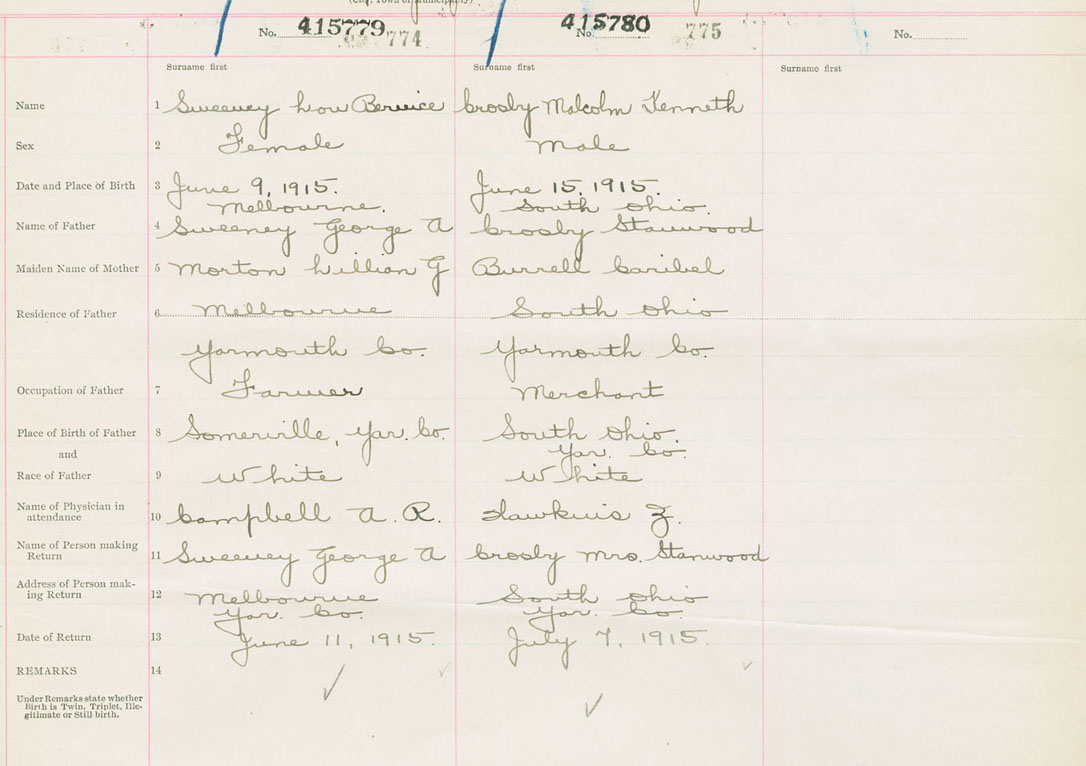 No. 415779 774
No. 415780 775
No.
Surname first
Surname first
Surname first
Name 1 Sweeney Bernice Crosby Malcolm Kenneth
Sex 2 Female Male
Date and Place of Birth 3 June 9, 1915. June 15, 1915.
Melbourne. South Ohio.
Name of Father 4 Sweeney George A Crosby Stanwood
Maiden Name of Mother 5 Morton Lillian G Burrell Caribel
Residence of Father 6 Melbourne South Ohio
Yarmouth Co. Yarmouth Co.
Occupation of Father 7 Farmer Merchant
Place of Birth of Father 8 Somerville, Yar. Co. South Ohio.
and Yar. Co.
Race of Father 9 White White
Name of Physician in
attendance 10 Campbell A. R. Hawkins Z.
Name of Person making
Return 11 Sweeney George A Crosby Mrs. Stanwood
Address of Person mak-
ing Return 12 Melbourne South Ohio
Yar. Co. Yar. Co.
Date of Return 13 June 11, 1915. July 7, 1915.
REMARKS 14
Under Remarks state whether
Birth is Twin, Triplet, Ille-
gitimate or Still birth.